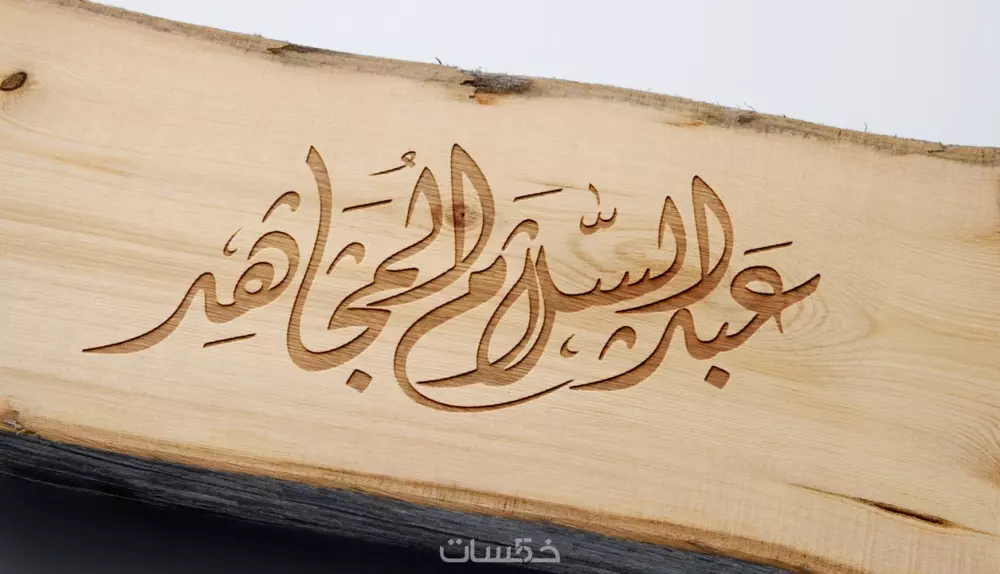 عَبد السَّلَام المُجَاهِد
خمسات